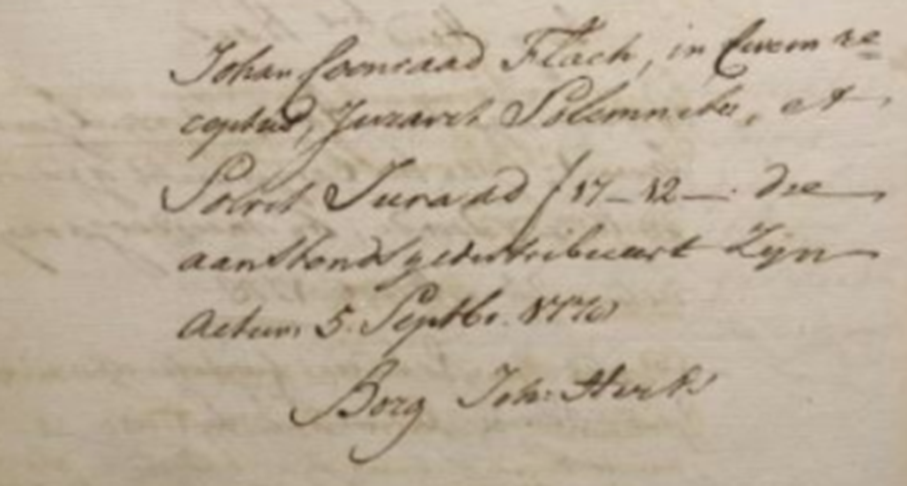 Johan Coonraad Flach, in Civem re=
ceptus, Juravit Solemniter, et
Solvit Juraad f 17_12_. die
aanstonds gedistribueert Zijn
Actum 5. Septbr. 1770
Borg Joh: